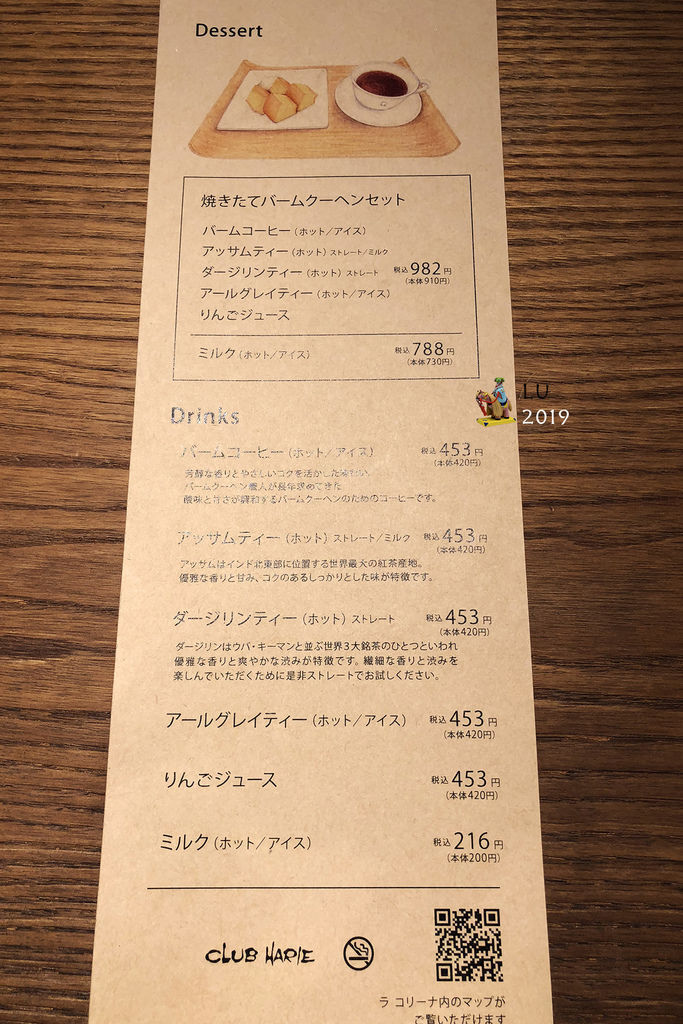 Dessert
焼きたてバームクーヘンセット
バームコーヒー（ホット／アイス）
アッサムティー（ホット）ストレート／ミルク
ダージリンティー（ホット）ストレート 税込982円
（本体910円）
アールグレイティー（ホット／アイス）
りんごジュース
ミルク（ホット／アイス） 税込788円
（本体730円）
LU
2019
Drinks
バームコーヒー（ホット／アイス） 税込453円
（本体420円）
芳醇な香りとやさしいコクを活かした味わい。
バームクーヘン職人が長年求めてきた
酸味と甘さが調和するバームクーヘンのためのコーヒーです。
アッサムティー（ホット）ストレート／ミルク 税込453円
（本体420円）
アッサムはインド北東部に位置する世界最大の紅茶産地。
優雅な香りと甘み、コクのあるしっかりとした味が特徴です。
ダージリンティー（ホット）ストレート 税込453円
（本体420円）
ダージリンはウバ・キーマンと並ぶ世界3大銘茶のひとつといわれ
優雅な香りと爽やかな渋みが特徴です。繊細な香りと渋みを
楽しんでいただくために是非ストレートでお試しください。
アールグレイティー（ホット／アイス） 税込453円
（本体420円）
りんごジュース 税込453円
（本体420円）
ミルク（ホット／アイス） 税込216円
（本体200円）
CLUB HARIE
ラ コリーナ内のマップが
ご覧いただけます